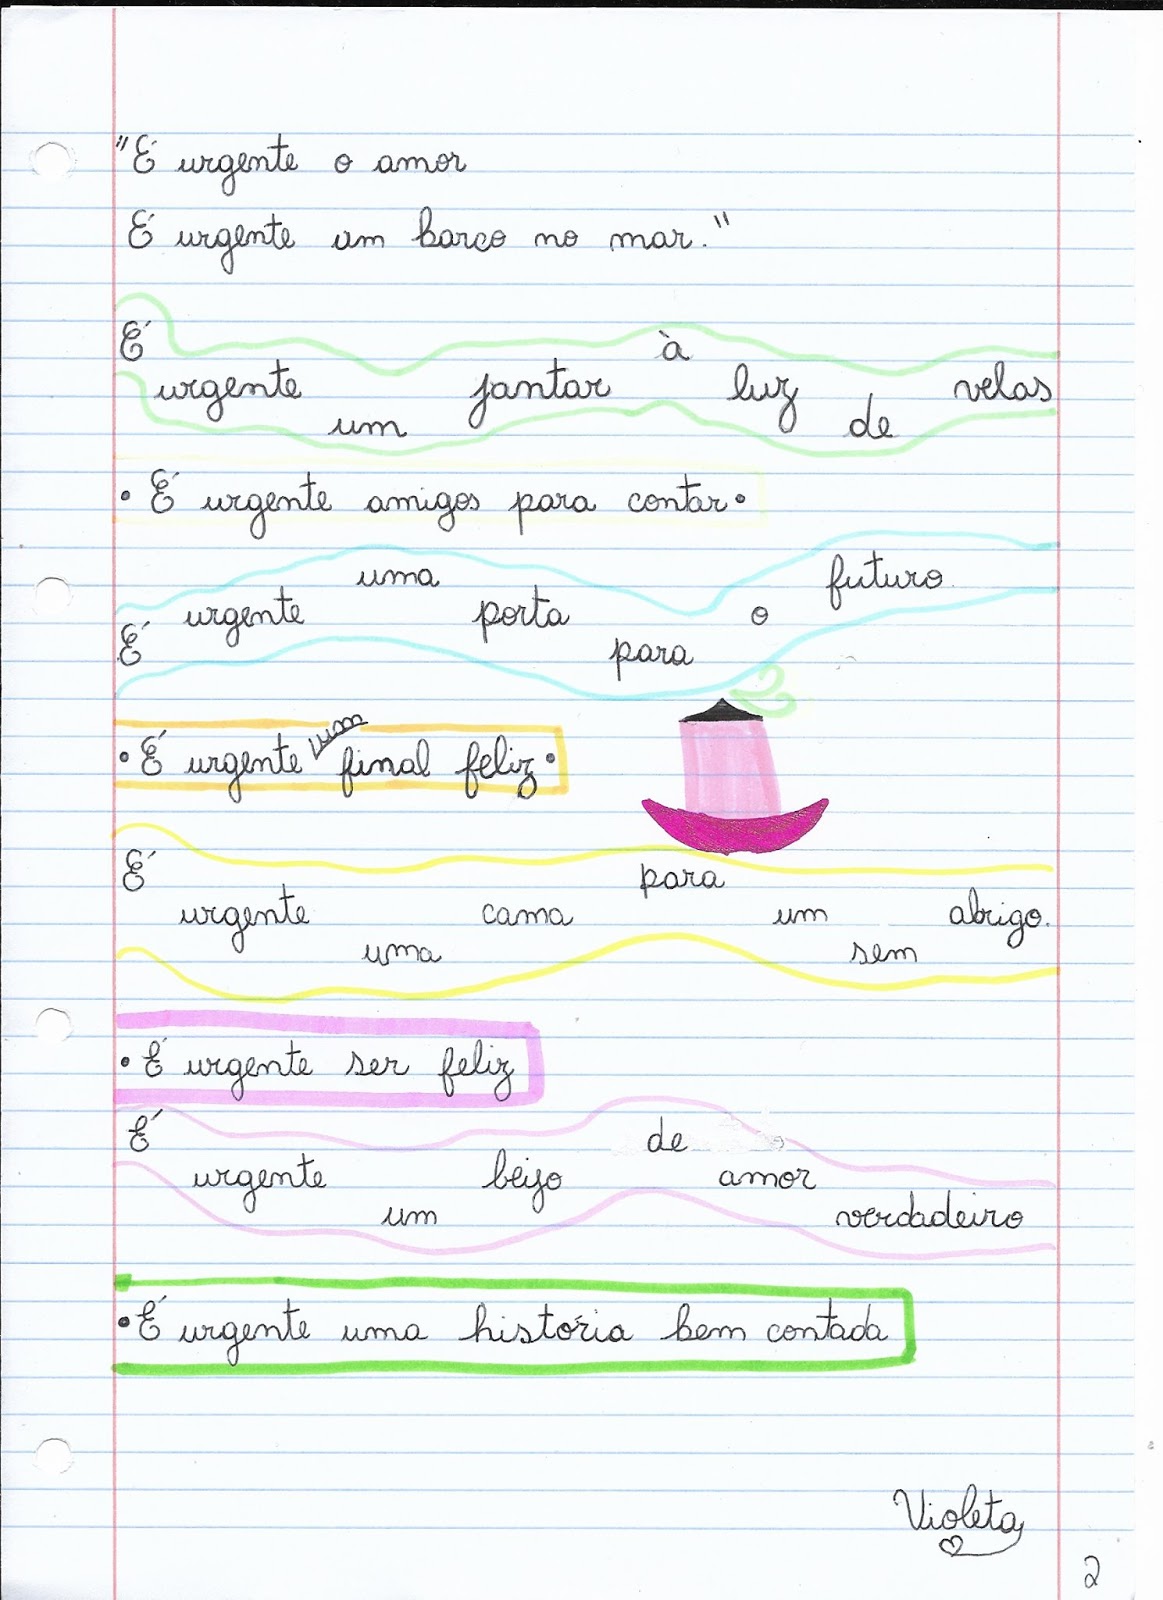 "É urgente o amor
É urgente um barco no mar."
É urgente um jantar à luz de velas
• É urgente amigos para contar •
É urgente uma porta para o futuro
• É urgente um final feliz •
É urgente uma cama para um sem abrigo.
• É urgente ser feliz
É urgente um beijo de amor verdadeiro
• É urgente uma historia bem contada
Violeta
2